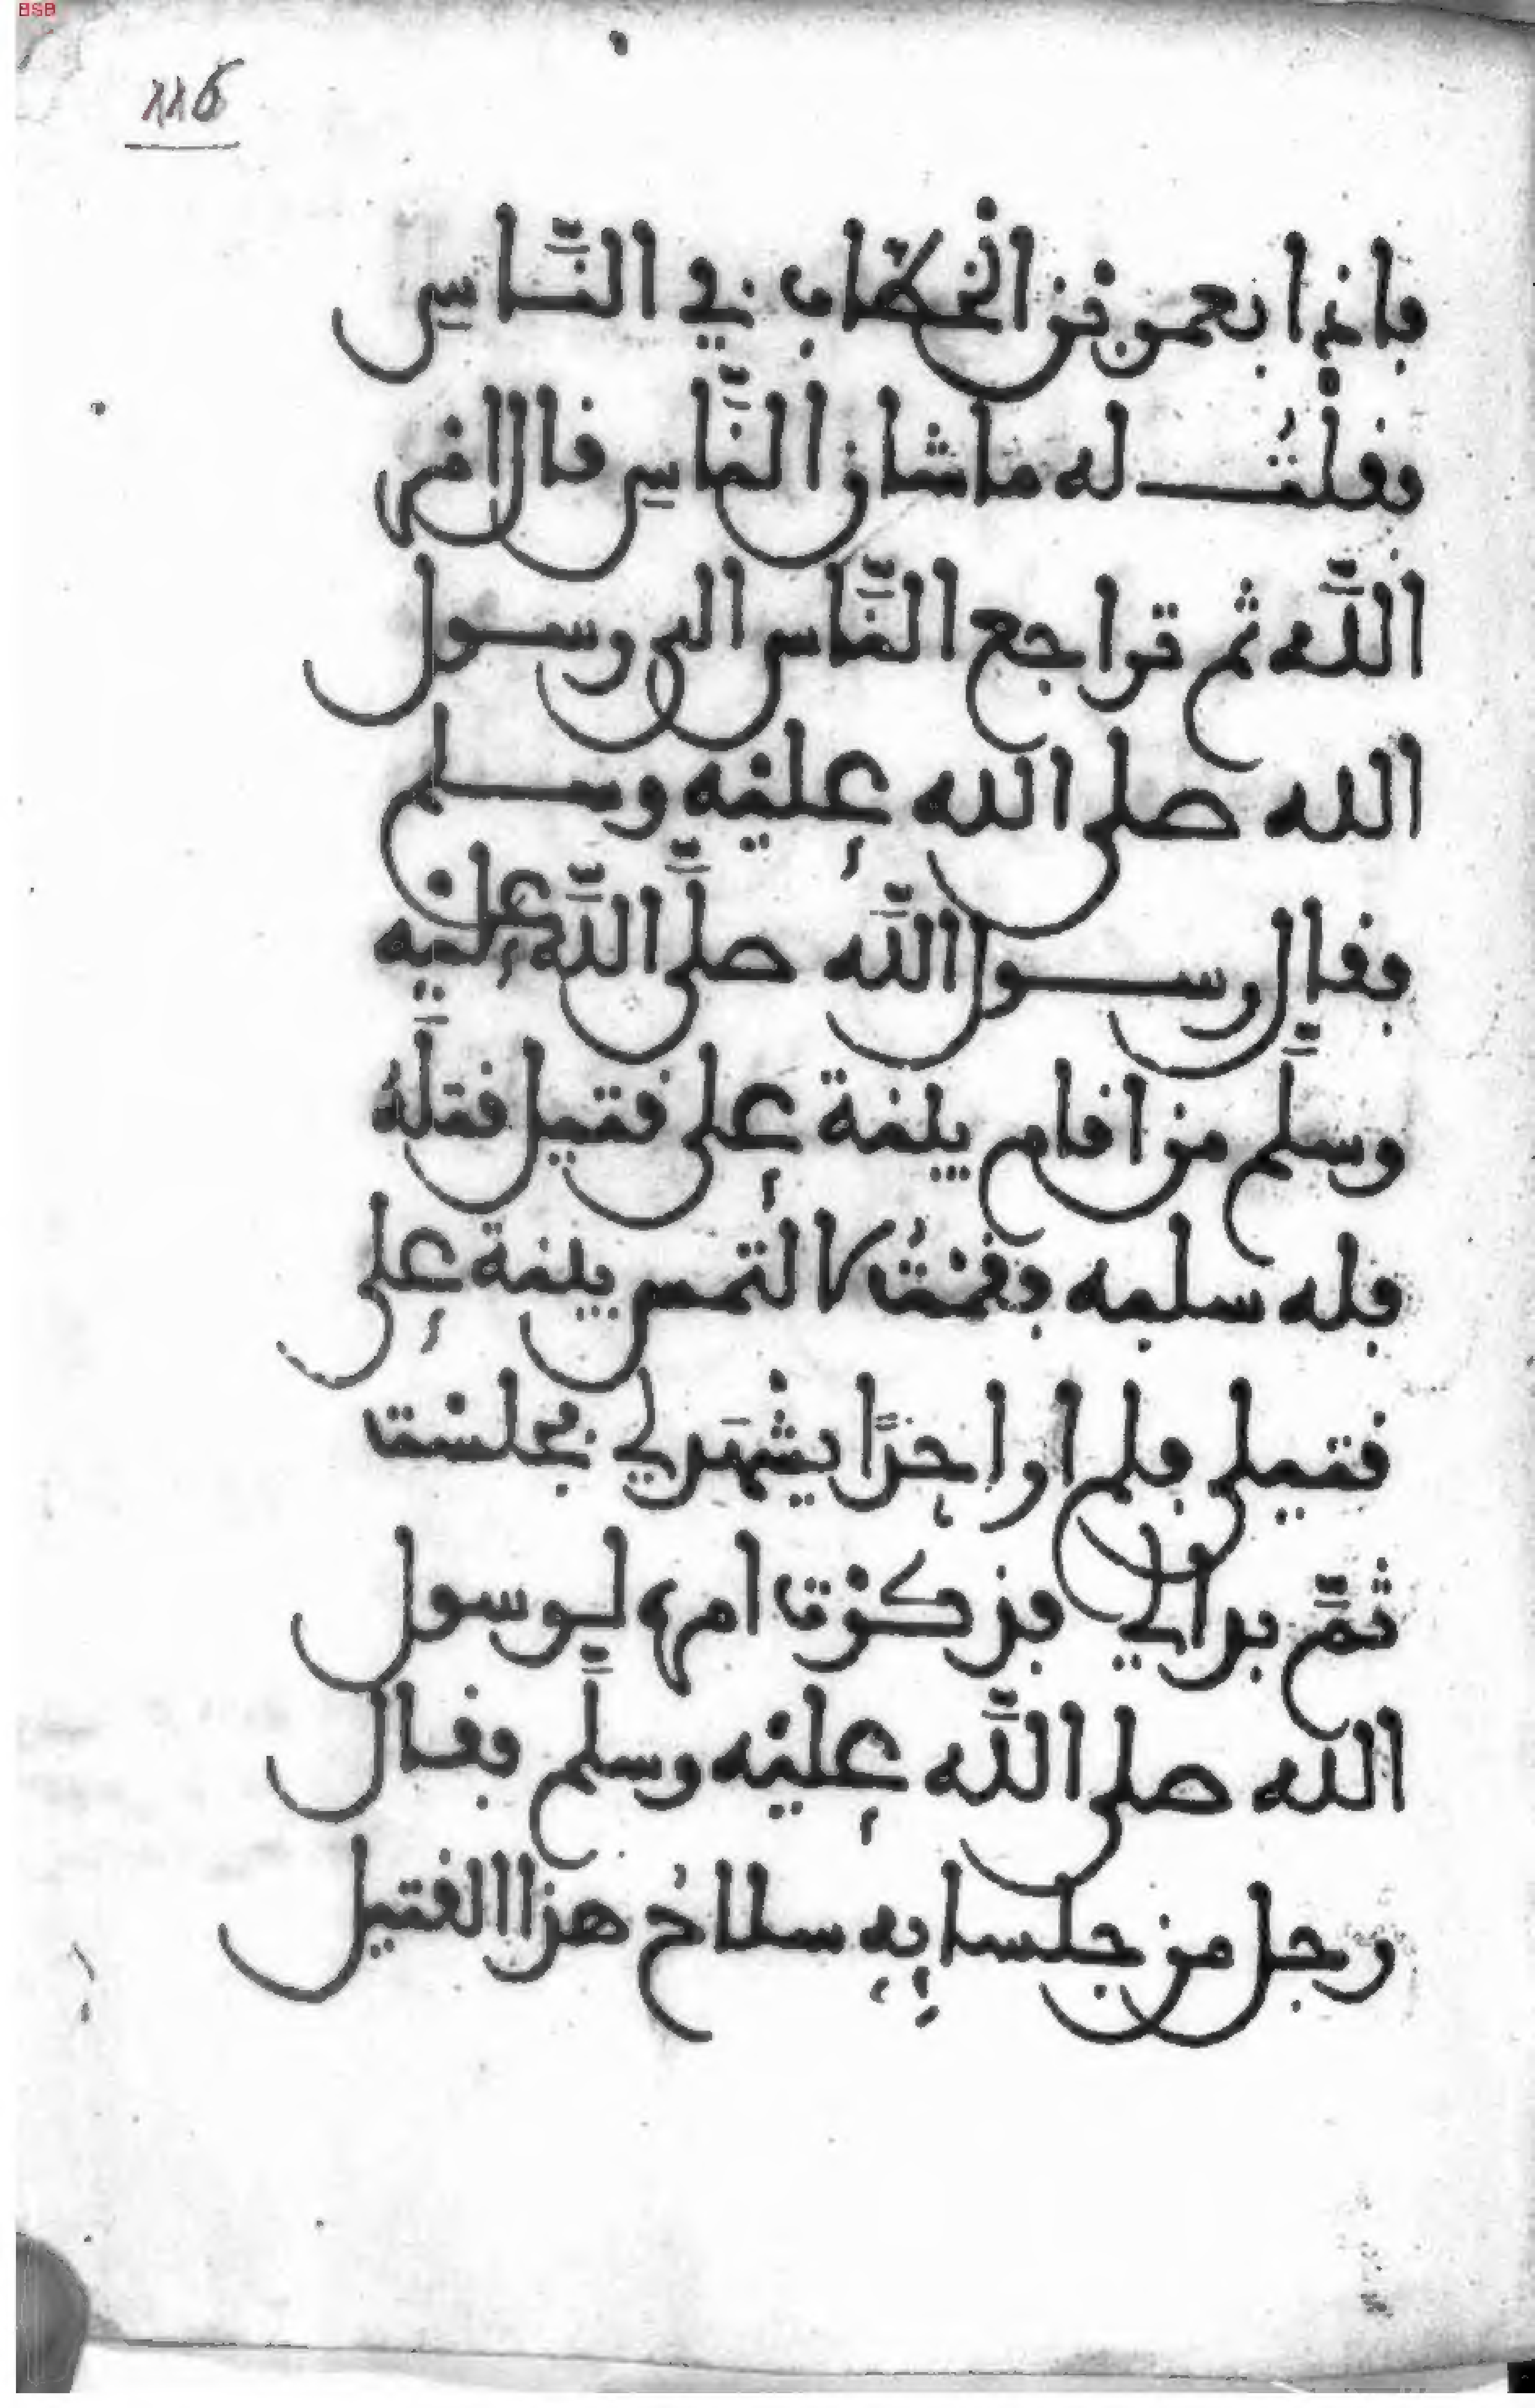 BSB
116
فاذا بعمر بن الخطاب في الناس
فقلت له ما شان الناس قال امر
اللّه ثم تراجع النّاس الى رسول
الله صلى الله عليه وسلم
فقال رسول اللّه صلّى اللّه عليه
وسلّم من اقام بينة على قتيل قتله
فله سلبه فقمت لالتمس بينة على
قتيلى فلم ار احدًا يشهد لي فجلست
ثمّ بدا لي فذكرت امره لرسول
الله صلى اللّه عليه وسلّم فقال
رجل من جلسايه سلاح هذا القتيل